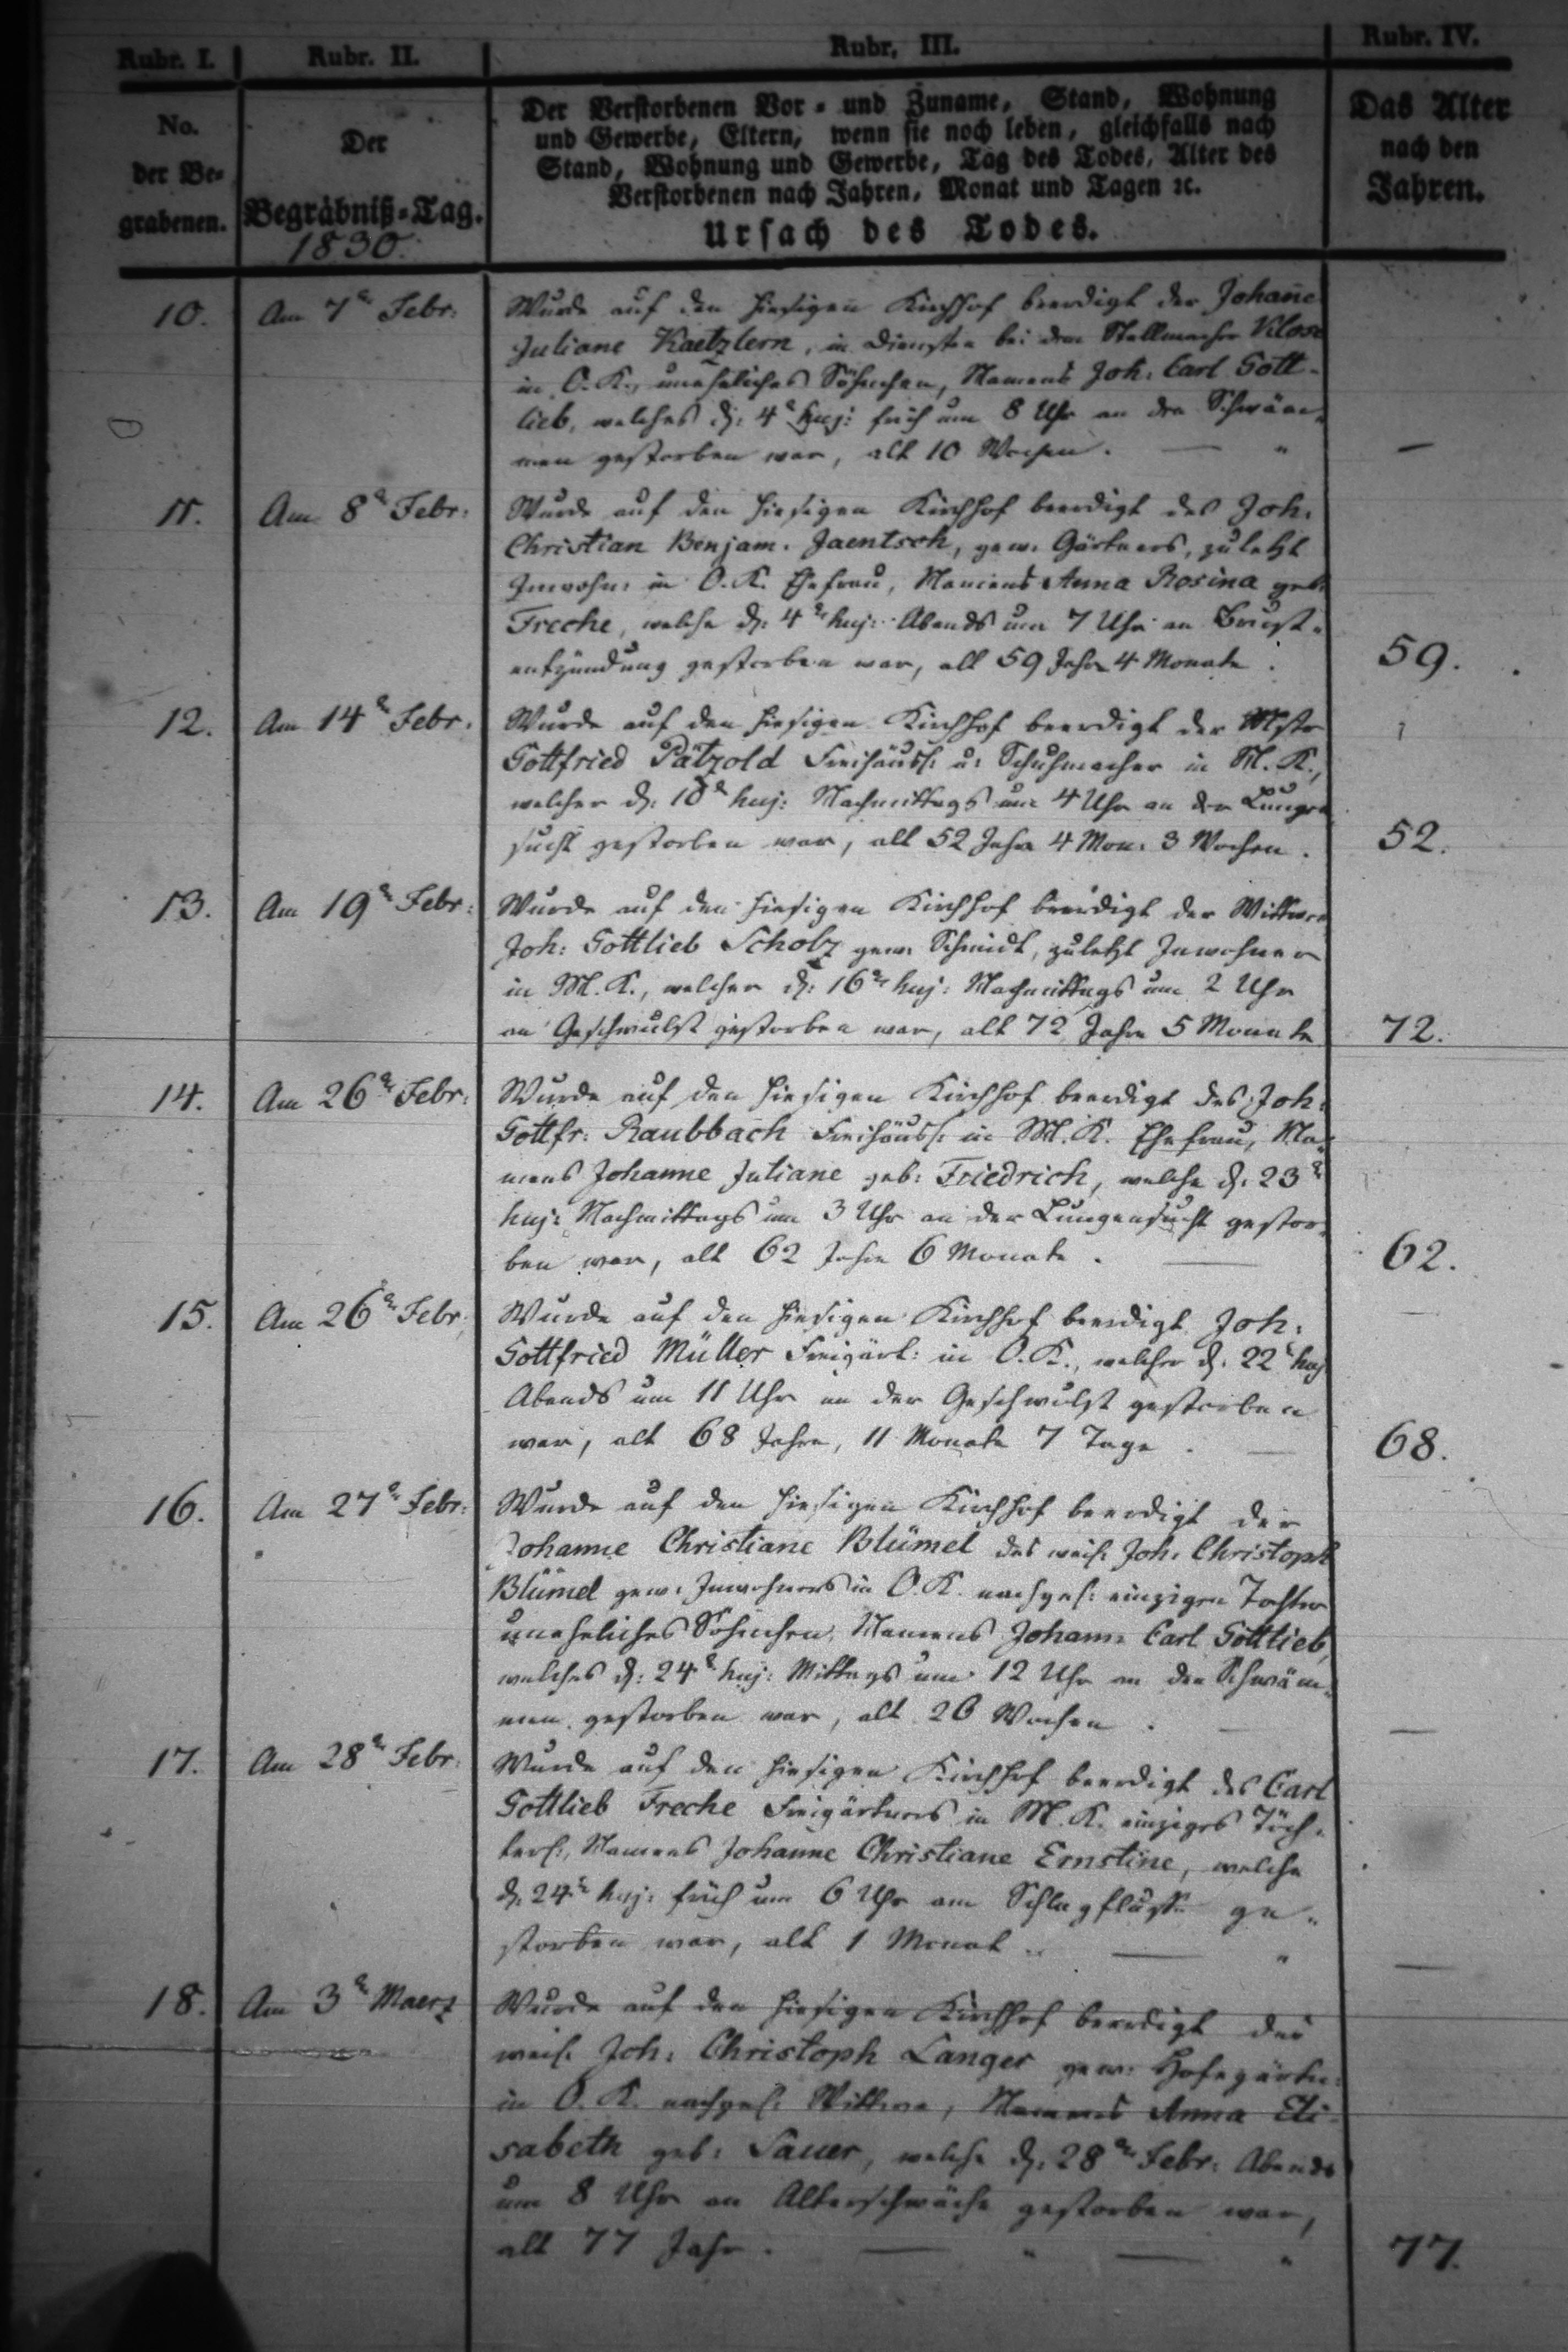 Rubr. I. Rubr. II. Rubr. III. Rubr. IV.
No.
der Be-
grabenen.
Der
Begräbniß-Tag.
1830.
Der Verstorbenen Vor- und Zuname, Stand, Wohnung
und Gewerbe, Eltern, wenn sie noch leben, gleichfalls nach
Stand, Wohnung und Gewerbe, Tag des Todes, Alter des
Verstorbenen nach Jahren, Monat und Tagen ꝛc.
Ursach des Todes.
Das Alter
nach den
Jahren.
10. Am 7ten Febr: Wurde auf den hiesigen Kirchhof beerdigt der Johane
Juliane Kaetzlern, in Diensten bei dem Stellmacher Klose
in O. K., uneheliches Söhnchen, Namens Joh: Carl Gott-
lieb, welches d: 4t huj: früh um 8 Uhr an den Schwäm-
men gestorben war, alt 10 Wochen. —
11. Am 8ten Febr: Wurde auf den hiesigen Kirchhof beerdigt des Joh.
Christian Benjam. Jaentsch, gew. Gärtners, zuletzt
Inwohn: in O. K. Ehefrau, Namens Anna Rosina geb:
Freche, welche d: 4ten huj: Abends um 7 Uhr an Brust-
entzündung gestorben war, alt 59 Jahr 4 Monate. 59.
12. Am 14ten Febr. Wurde auf den hiesigen Kirchhof beerdigt der Mstr
Gottfried Pätzold Freihäusl: u: Schuhmacher in M. K.,
welcher d: 10t huj: Nachmittags um 4 Uhr an der Lungen
sucht gestorben war, alt 52 Jahr 4 Mon: 3 Wochen. 52.
13. Am 19ten Febr: Wurde auf den hiesigen Kirchhof beerdigt der Wittwer
Joh: Gottlieb Scholz gew: Schmidt, zuletzt Inwohner
in M. K., welcher d: 16ten huj: Nachmittags um 2 Uhr
an Geschwulst gestorben war, alt 72 Jahr 5 Monate 72.
14. Am 26ten Febr: Wurde auf den hiesigen Kirchhof beerdigt des Joh:
Gottfr: Raubbach Freihäusl: in M. K. Ehefrau, Na-
mens Johanne Juliane geb: Friedrich, welche d: 23t
huj: Nachmittags um 3 Uhr an der Lungensucht gestor-
ben war, alt 62 Jahr 6 Monate. — 62.
15. Am 26ten Febr: Wurde auf den hiesigen Kirchhof beerdigt Joh:
Gottfried Müller Freigärt: in O. K., welcher d: 22t huj
Abends um 11 Uhr an der Geschwulst gestorben
war, alt 68 Jahre, 11 Monate 7 Tage. — 68.
16. Am 27ten Febr: Wurde auf den hiesigen Kirchhof beerdigt der
Johanne Christiane Blümel des weil: Joh: Christoph
Blümel gew: Inwohners in O. K. nachgel: einzigen Tochter
uneheliches Söhnchen, Namens Johann Carl Gottlieb,
welches d: 24t huj: Mittags um 12 Uhr an den Schwäm-
men gestorben war, alt 26 Wochen. —
17. Am 28ten Febr: Wurde auf den hiesigen Kirchhof beerdigt des Carl
Gottlieb Freche Freigärtners in M. K. einziges Töch-
terl:, Namens Johanne Christiane Ernstine, welche
d: 24t huj: früh um 6 Uhr am Schlagfluss ge-
storben war, alt 1 Monat. —
18. Am 3ten Maerz Wurde auf den hiesigen Kirchhof beerdigt des
weil: Joh: Christoph Langer gew: Hofegärtn:
in O. K. nachgel: Wittwe, Namens Anna Eli-
sabeth geb: Sauer, welche d: 28ten Febr: Abends
um 8 Uhr an Altersschwäche gestorben war,
alt 77 Jahr. — 77.